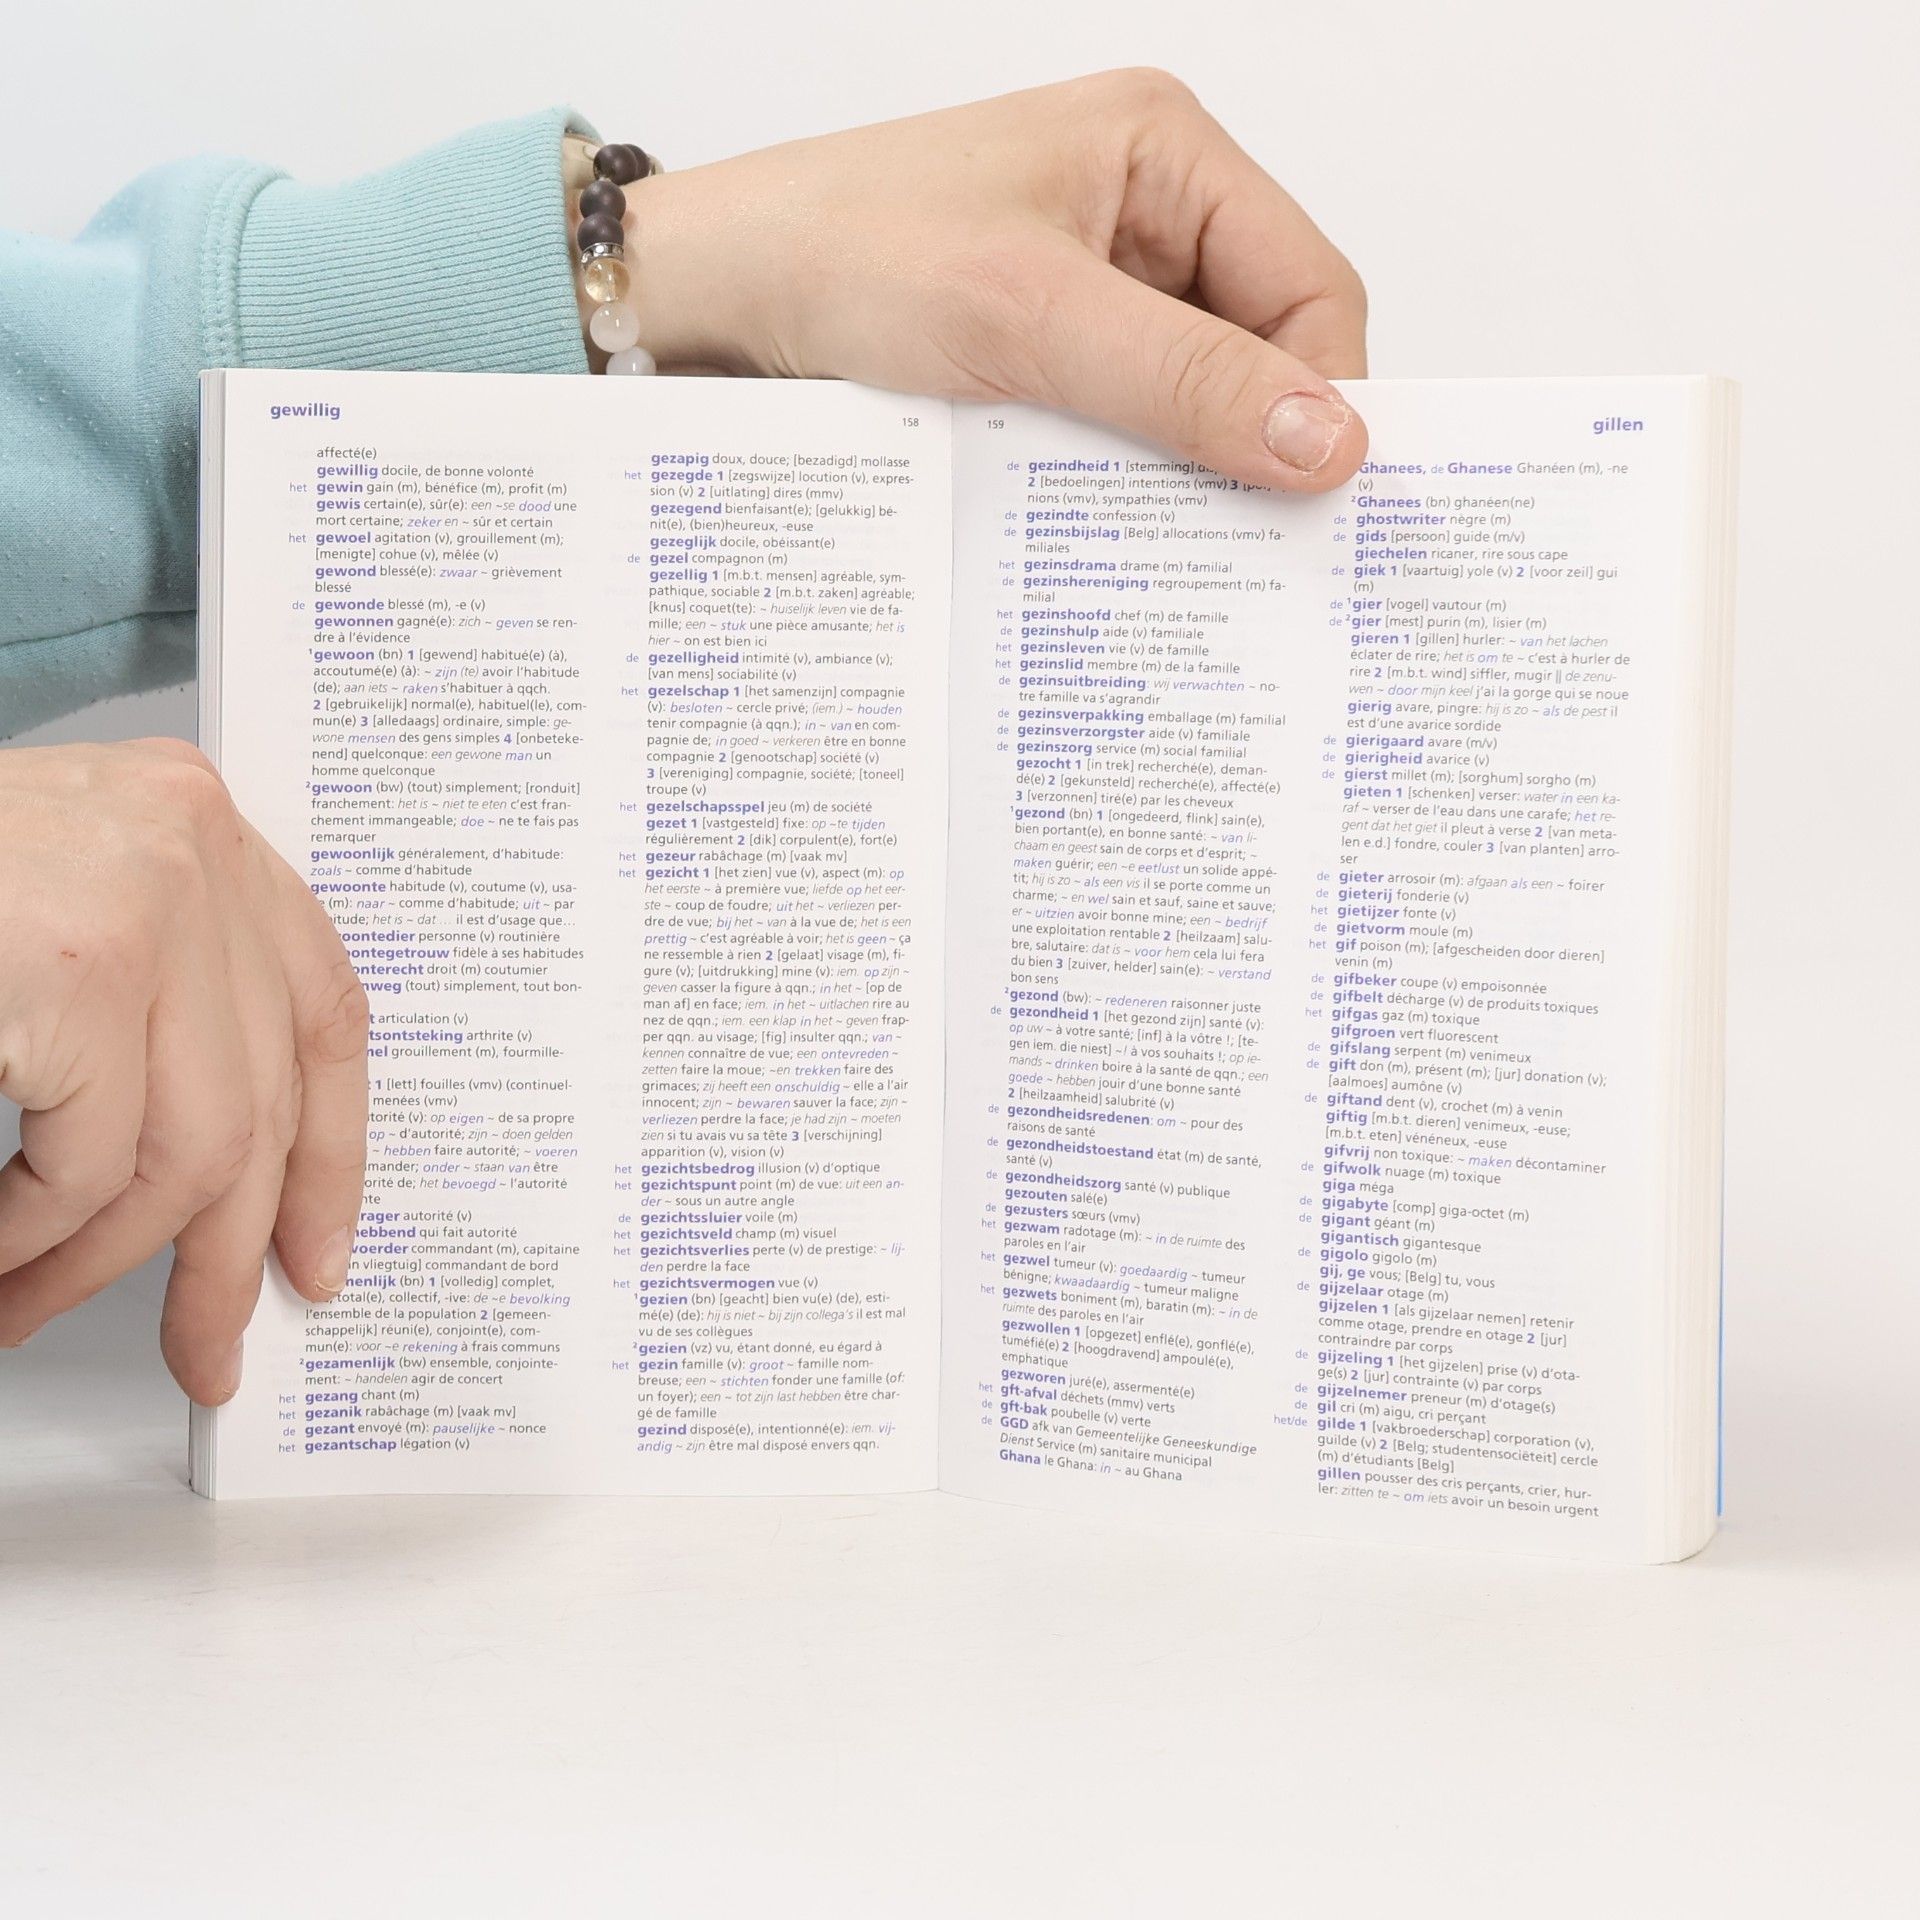 gewillig
158
affecté(e)
gewillig docile, de bonne volonté
het gewin gain (m), bénéfice (m), profit (m)
gewis certain(e), sûr(e): een ~se dood une
mort certaine; zeker en ~ sûr et certain
het gewoel agitation (v), grouillement (m);
[menigte] cohue (v), mêlée (v)
gewond blessé(e): zwaar ~ grièvement
blessé
de gewonde blessé (m), -e (v)
gewonnen gagné(e): zich ~ geven se ren-
dre à l'évidence
¹gewoon (bn) 1 [gewend] habitué(e) (à),
accoutumé(e) (à): ~ zijn (te) avoir l'habitude
(de); aan iets ~ raken s'habituer à qqch.
2 [gebruikelijk] normal(e), habituel(le), com-
mun(e) 3 [alledaags] ordinaire, simple: ge-
wone mensen des gens simples 4 [onbeteke-
nend] quelconque: een gewone man un
homme quelconque
²gewoon (bw) (tout) simplement; [ronduit]
franchement: het is ~ niet te eten c'est fran-
chement immangeable; doe ~ ne te fais pas
remarquer
gewoonlijk généralement, d'habitude:
zoals ~ comme d'habitude
gewoonte habitude (v), coutume (v), usa-
(m): naar ~ comme d'habitude; uit ~ par
itude; het is ~ dat ... il est d'usage que...
oontedier personne (v) routinière
ontegetrouw fidèle à ses habitudes
onterecht droit (m) coutumier
nweg (tout) simplement, tout bon-
t articulation (v)
tsontsteking arthrite (v)
nel grouillement (m), fourmille-
t 1 [lett] fouilles (vmv) (continuel-
menées (vmv)
utorité (v): op eigen ~ de sa propre
op ~ d'autorité; zijn ~ doen gelden
~ hebben faire autorité; ~ voeren
mander; onder ~ staan van être
orité de; het bevoegd ~ l'autorité
nte
rager autorité (v)
hebbend qui fait autorité
voerder commandant (m), capitaine
n vliegtuig] commandant de bord
menlijk (bn) 1 [volledig] complet,
total(e), collectif, -ive: de ~e bevolking
l'ensemble de la population 2 [gemeen-
schappelijk] réuni(e), conjoint(e), com-
mun(e): voor ~e rekening à frais communs
²gezamenlijk (bw) ensemble, conjointe-
ment: ~ handelen agir de concert
het gezang chant (m)
het gezanik rabâchage (m) [vaak mv]
de gezant envoyé (m): pauselijke ~ nonce
het gezantschap légation (v)
gezapig doux, douce; [bezadigd] mollasse
het gezegde 1 [zegswijze] locution (v), expres-
sion (v) 2 [uitlating] dires (mmv)
gezegend bienfaisant(e); [gelukkig] bé-
nit(e), (bien)heureux, -euse
gezeglijk docile, obéissant(e)
de gezel compagnon (m)
gezellig 1 [m.b.t. mensen] agréable, sym-
pathique, sociable 2 [m.b.t. zaken] agréable;
[knus] coquet(te): ~ huiselijk leven vie de fa-
mille; een ~ stuk une pièce amusante; het is
hier ~ on est bien ici
de gezelligheid intimité (v), ambiance (v);
[van mens] sociabilité (v)
het gezelschap 1 [het samenzijn] compagnie
(v): besloten ~ cercle privé; (iem.) ~ houden
tenir compagnie (à qqn.); in ~ van en com-
pagnie de; in goed ~ verkeren être en bonne
compagnie 2 [genootschap] société (v)
3 [vereniging] compagnie, société; [toneel]
troupe (v)
het gezelschapsspel jeu (m) de société
gezet 1 [vastgesteld] fixe: op ~te tijden
régulièrement 2 [dik] corpulent(e), fort(e)
het gezeur rabâchage (m) [vaak mv]
het gezicht 1 [het zien] vue (v), aspect (m): op
het eerste ~ à première vue; liefde op het eer-
ste ~ coup de foudre; uit het ~ verliezen per-
dre de vue; bij het ~ van à la vue de; het is een
prettig ~ c'est agréable à voir; het is geen ~ ça
ne ressemble à rien 2 [gelaat] visage (m), fi-
gure (v); [uitdrukking] mine (v): iem. op zijn ~
geven casser la figure à qqn.; in het ~ [op de
man af] en face; iem. in het ~ uitlachen rire au
nez de qqn.; iem. een klap in het ~ geven frap-
per qqn. au visage; [fig] insulter qqn.; van ~
kennen connaître de vue; een ontevreden ~
zetten faire la moue; ~en trekken faire des
grimaces; zij heeft een onschuldig ~ elle a l'air
innocent; zijn ~ bewaren sauver la face; zijn ~
verliezen perdre la face; je had zijn ~ moeten
zien si tu avais vu sa tête 3 [verschijning]
apparition (v), vision (v)
het gezichtsbedrog illusion (v) d'optique
het gezichtspunt point (m) de vue: uit een an-
der ~ sous un autre angle
de gezichtssluier voile (m)
het gezichtsveld champ (m) visuel
het gezichtsverlies perte (v) de prestige: ~ lij-
den perdre la face
het gezichtsvermogen vue (v)
¹gezien (bn) [geacht] bien vu(e) (de), esti-
mé(e) (de): hij is niet ~ bij zijn collega's il est mal
vu de ses collègues
²gezien (vz) vu, étant donné, eu égard à
het gezin famille (v): groot ~ famille nom-
breuse; een ~ stichten fonder une famille (of:
un foyer); een ~ tot zijn last hebben être char-
gé de famille
gezind disposé(e), intentionné(e): iem. vij-
andig ~ zijn être mal disposé envers qqn.
159
gillen
de gezindheid 1 [stemming]
2 [bedoelingen] intentions (vmv) 3
nions (vmv), sympathies (vmv)
de gezindte confession (v)
de gezinsbijslag [Belg] allocations (vmv) fa-
miliales
het gezinsdrama drame (m) familial
de gezinshereniging regroupement (m) fa-
milial
het gezinshoofd chef (m) de famille
de gezinshulp aide (v) familiale
het gezinsleven vie (v) de famille
het gezinslid membre (m) de la famille
de gezinsuitbreiding: wij verwachten ~ no-
tre famille va s'agrandir
de gezinsverpakking emballage (m) familial
de gezinsverzorgster aide (v) familiale
de gezinszorg service (m) social familial
gezocht 1 [in trek] recherché(e), deman-
dé(e) 2 [gekunsteld] recherché(e), affecté(e)
3 [verzonnen] tiré(e) par les cheveux
¹gezond (bn) 1 [ongedeerd, flink] sain(e),
bien portant(e), en bonne santé: ~ van li-
chaam en geest sain de corps et d'esprit; ~
maken guérir; een ~e eetlust un solide appé-
tit; hij is zo ~ als een vis il se porte comme un
charme; ~ en wel sain et sauf, saine et sauve;
er ~ uitzien avoir bonne mine; een ~ bedrijf
une exploitation rentable 2 [heilzaam] salu-
bre, salutaire: dat is ~ voor hem cela lui fera
du bien 3 [zuiver, helder] sain(e): ~ verstand
bon sens
²gezond (bw): ~ redeneren raisonner juste
de gezondheid 1 [het gezond zijn] santé (v):
op uw ~ à votre santé; [inf] à la vôtre !; [te-
gen iem. die niest] ~! à vos souhaits !; op ie-
mands ~ drinken boire à la santé de qqn.; een
goede ~ hebben jouir d'une bonne santé
2 [heilzaamheid] salubrité (v)
de gezondheidsredenen: om ~ pour des
raisons de santé
de gezondheidstoestand état (m) de santé,
santé (v)
de gezondheidszorg santé (v) publique
gezouten salé(e)
de gezusters sœurs (vmv)
het gezwam radotage (m): ~ in de ruimte des
paroles en l'air
het gezwel tumeur (v): goedaardig ~ tumeur
bénigne; kwaadaardig ~ tumeur maligne
het gezwets boniment (m), baratin (m): ~ in de
ruimte des paroles en l'air
gezwollen 1 [opgezet] enflé(e), gonflé(e),
tuméfié(e) 2 [hoogdravend] ampoulé(e),
emphatique
gezworen juré(e), assermenté(e)
het gft-afval déchets (mmv) verts
de gft-bak poubelle (v) verte
de GGD afk van Gemeentelijke Geneeskundige
Dienst Service (m) sanitaire municipal
Ghana le Ghana: in ~ au Ghana
Ghanees, de Ghanese Ghanéen (m), -ne
(v)
²Ghanees (bn) ghanéen(ne)
de ghostwriter nègre (m)
de gids [persoon] guide (m/v)
giechelen ricaner, rire sous cape
de giek 1 [vaartuig] yole (v) 2 [voor zeil] gui
(m)
de ¹gier [vogel] vautour (m)
de ²gier [mest] purin (m), lisier (m)
gieren 1 [gillen] hurler: ~ van het lachen
éclater de rire; het is om te ~ c'est à hurler de
rire 2 [m.b.t. wind] siffler, mugir || de zenu-
wen ~ door mijn keel j'ai la gorge qui se noue
gierig avare, pingre: hij is zo ~ als de pest il
est d'une avarice sordide
de gierigaard avare (m/v)
de gierigheid avarice (v)
de gierst millet (m); [sorghum] sorgho (m)
gieten 1 [schenken] verser: water in een ka-
raf ~ verser de l'eau dans une carafe; het re-
gent dat het giet il pleut à verse 2 [van meta-
len e.d.] fondre, couler 3 [van planten] arro-
ser
de gieter arrosoir (m): afgaan als een ~ foirer
de gieterij fonderie (v)
het gietijzer fonte (v)
de gietvorm moule (m)
het gif poison (m); [afgescheiden door dieren]
venin (m)
de gifbeker coupe (v) empoisonnée
de gifbelt décharge (v) de produits toxiques
het gifgas gaz (m) toxique
gifgroen vert fluorescent
de gifslang serpent (m) venimeux
de gift don (m), présent (m); [jur] donation (v);
[aalmoes] aumône (v)
de giftand dent (v), crochet (m) à venin
giftig [m.b.t. dieren] venimeux, -euse;
[m.b.t. eten] vénéneux, -euse
gifvrij non toxique: ~ maken décontaminer
de gifwolk nuage (m) toxique
giga méga
de gigabyte [comp] giga-octet (m)
de gigant géant (m)
gigantisch gigantesque
de gigolo gigolo (m)
gij, ge vous; [Belg] tu, vous
de gijzelaar otage (m)
gijzelen 1 [als gijzelaar nemen] retenir
comme otage, prendre en otage 2 [jur]
contraindre par corps
de gijzeling 1 [het gijzelen] prise (v) d'ota-
ge(s) 2 [jur] contrainte (v) par corps
de gijzelnemer preneur (m) d'otage(s)
de gil cri (m) aigu, cri perçant
het/de gilde 1 [vakbroederschap] corporation (v),
guilde (v) 2 [Belg; studentensociëteit] cercle
(m) d'étudiants [Belg]
gillen pousser des cris perçants, crier, hur-
ler: zitten te ~ om iets avoir un besoin urgent